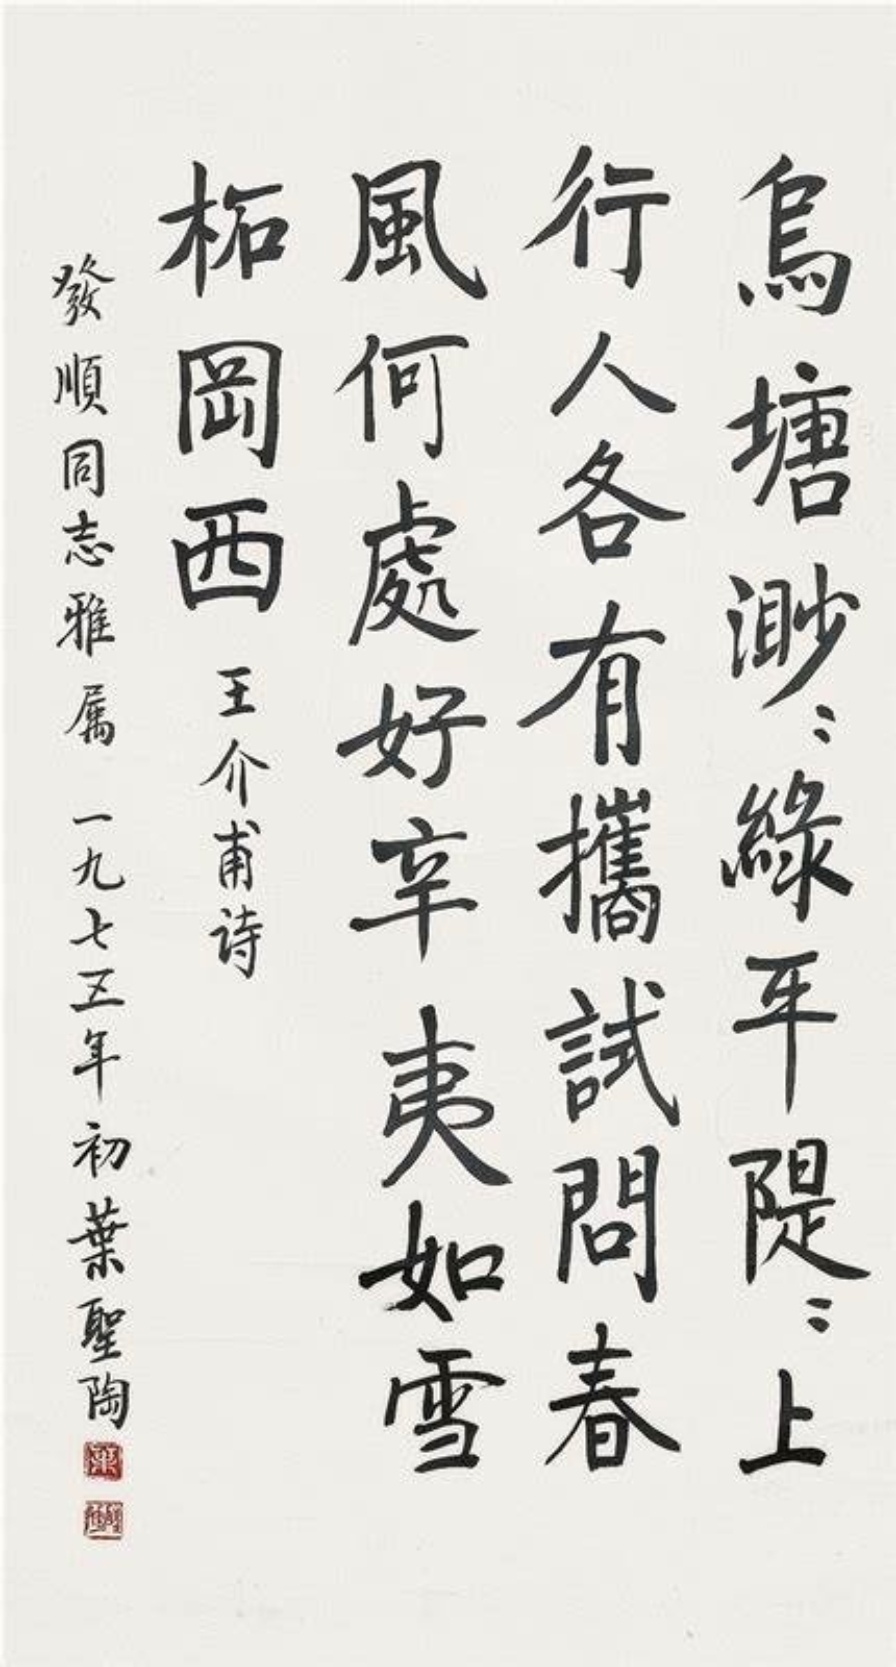 烏塘渺〻綠平隄〻上
行人各有攜試問春
風何處好辛夷如雪
柘岡西 王介甫诗
發順同志雅属 一九七五年初葉聖陶